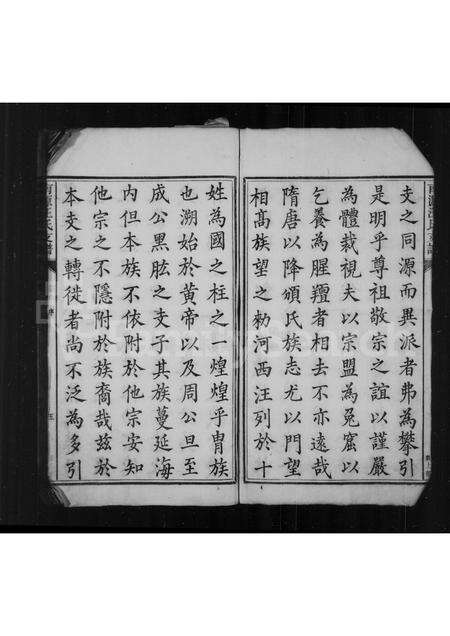 支之同源而異派者弗為攀引
是明乎尊祖敬宗之誼以謹嚴
為體裁視夫以宗盟為兔窟以
乞養為腥羶者相去不亦遠哉
隋唐以降頒氏族志尤以門望
相高族望之勑河西汪列於十
姓為國之柱之一煌煌乎冑族
也溯始於黃帝以及周公旦至
成公黑肱之支子其族蔓延海
內但本族不依附於他宗安知
他宗之不隱附於族裔哉茲於
本支之轉徙者尚不泛為多引